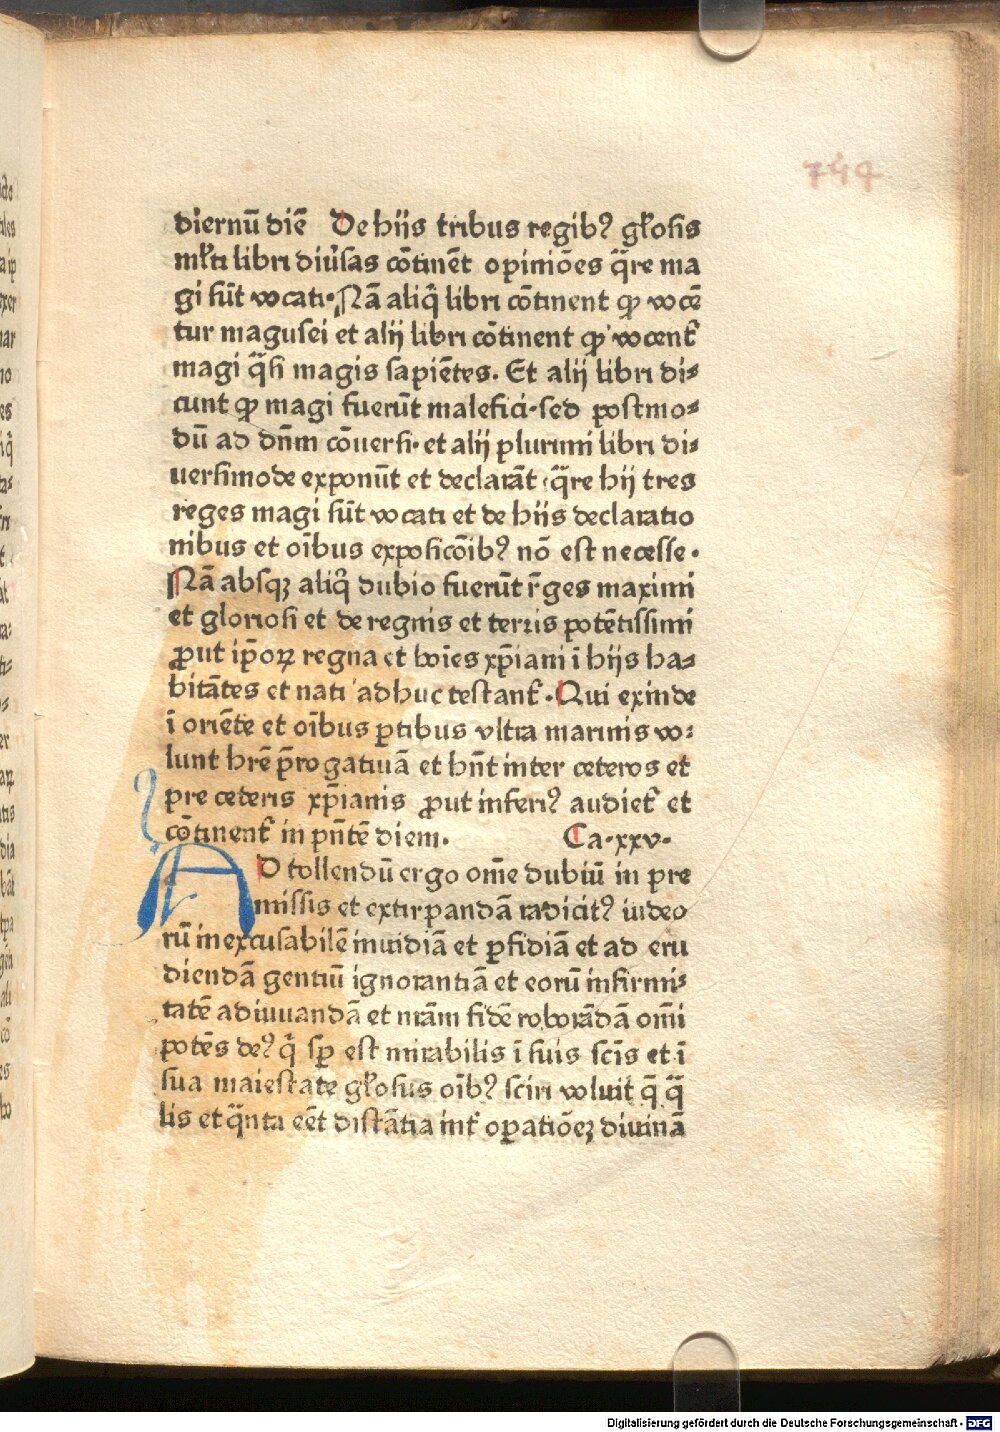 744
diernū diē De hijs tribus regib⁹ gl'osis
ml'ti libri diu'sas cōtinēt opiniōes q̄re ma
gi sūt vocati. Nā aliq̄ libri cōtinent ꝙ voce
tur magusei et alij libri cōtinent ꝙ vocent'
magi q̄si magis sapiētes. Et alij libri di⸗
cunt ꝙ magi fuerūt malefici. sed postmo⸗
dū ad dn̄m cōuersi. et alij plurimi libri di⸗
uersimode exponūt et declarāt q̄re hij tres
reges magi sūt vocati et de hijs declaratio
nibus et oībus exposicōib⁹ nō est necesse.
Nā absqꝫ aliq̊ dubio fuerūt r̄ges maximi
et gloriosi et de regnis et terris potētissimi
ꝓut ip̄oꝝ regna et hoīes xp̄iani ī hijs ha⸗
bitātes et nati adhuc testant'. Qui exinde
ī oriēte et oībus ꝑtibus vltra marinis vo⸗
lunt hr̄e p̄rogatiuā et hn̄t inter ceteros et
pre ceteris xp̄ianis ꝓut inferi⁹ audiet' et
cōtinent' in pn̄tē diem. Ca. xxv.
AD tollendū ergo om̄e dubiū in pre
missis et extirpandā radicit⁹ iudeo
rū inexcusabilē inuidiā et ꝑfidiā et ad eru
diendā gentiū ignorantiā et eorū infirmi⸗
tatē adiuuandā et nr̄am fidē roborādā om̄i
potēs de⁹ q̄ sꝑ est mirabilis ī suis sc̄is et ī
sua maiestate gl'osus oīb⁹ sciri voluit q̄ q̄
lis et q̄nta eēt distātia int' oꝑatiōeꝫ diuinā
Digitalisierung gefördert durch die Deutsche Forschungsgemeinschaft - DFG